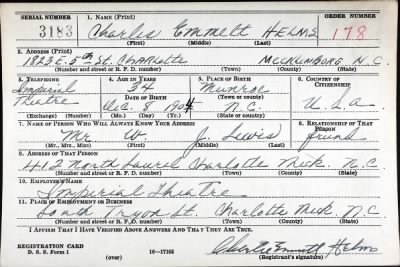 SERIAL NUMBER 1. NAME (Print) ORDER NUMBER
3183 Charles Emmett HELMS 178
(First) (Middle) (Last)
2. ADDRESS (Print)
1823 E. 5th St. Charlotte Mecklenburg N.C.
(Number and street or R. F. D. number) (Town) (County) (State)
3. TELEPHONE 4. AGE IN YEARS 5. PLACE OF BIRTH 6. COUNTRY OF CITIZENSHIP
Imperial 34 Munroe
Theatre DATE OF BIRTH (Town or county)
Dec. 8 1904 N.C. U.S.A.
(Exchange) (Number) (Mo.) (Day) (Yr.) (State or country)
7. NAME OF PERSON WHO WILL ALWAYS KNOW YOUR ADDRESS 8. RELATIONSHIP OF THAT PERSON
Mr. W. J. Lewis friend
(Mr., Mrs., Miss) (First) (Middle) (Last)
9. ADDRESS OF THAT PERSON
412 North Laurel Charlotte Meck. N.C.
(Number and street or R. F. D. number) (Town) (County) (State)
10. EMPLOYER'S NAME
Imperial Theatre
11. PLACE OF EMPLOYMENT OR BUSINESS
South Tryon St. Charlotte Meck N.C.
(Number and street or R. F. D. number) (Town) (County) (State)
I AFFIRM THAT I HAVE VERIFIED ABOVE ANSWERS AND THAT THEY ARE TRUE.
REGISTRATION CARD Charles Emmett Helms
D. S. S. Form 1 (over) 16—17105 (Registrant's signature)